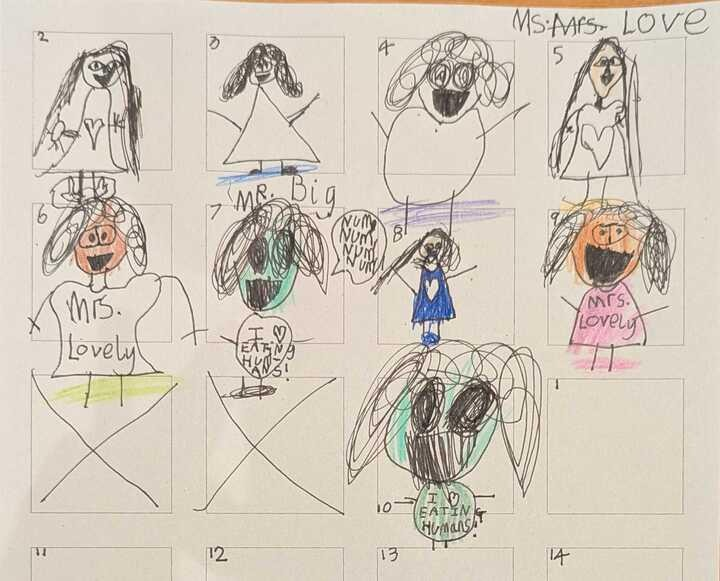 Ms. Mrs. LOVE
2
3
4
5
MR. Big
6
Mrs.
Lovely
7
NUM
NUM
NUM
NUM
I ♡
EATING
HUM
ANS!
8
9
Mrs.
Lovely
1
10
I ♡
EATING
Humans!
11
12
13
14